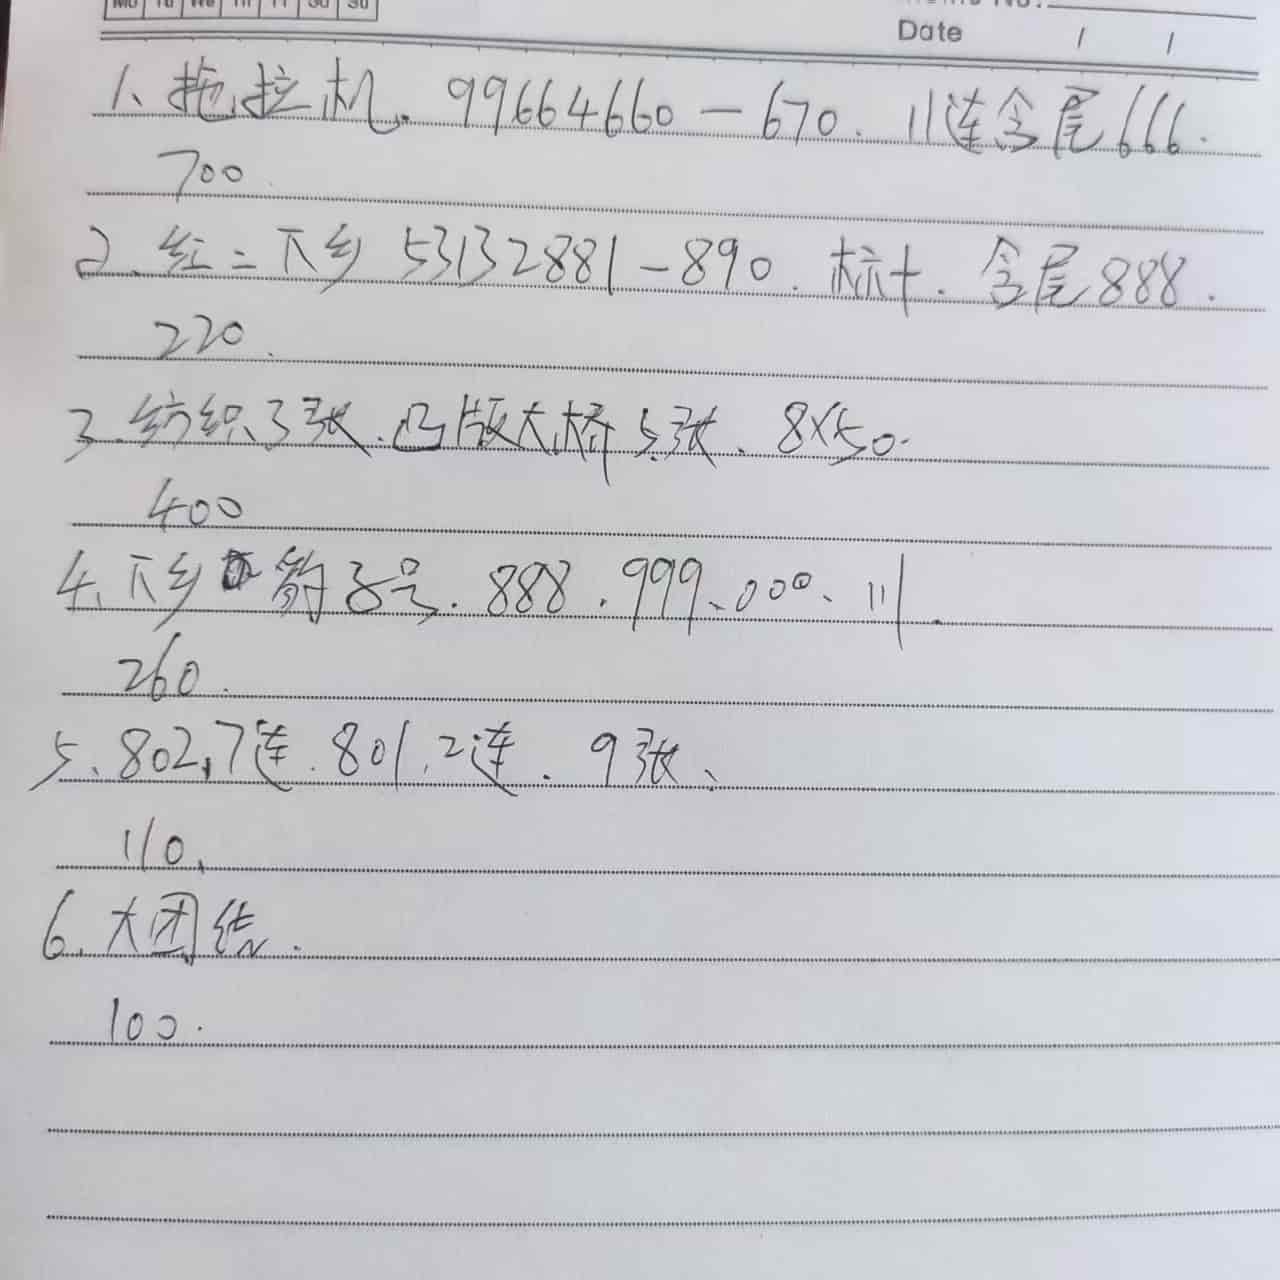 Mo Tu We Th Fr Sa Su
Memo No.
Date / /
1、拖拉机. 99664660－670. 11连含尾666.
700.
2.红二下乡 53132881－890. 标十. 含尾888.
220.
3.纺织3张.凸版大桥5张、8×50.
400
4.下乡 豹子号. 888. 999、000、111.
260.
5、802,7连.801.2连. 9张、
110.
6.大团结.
100.